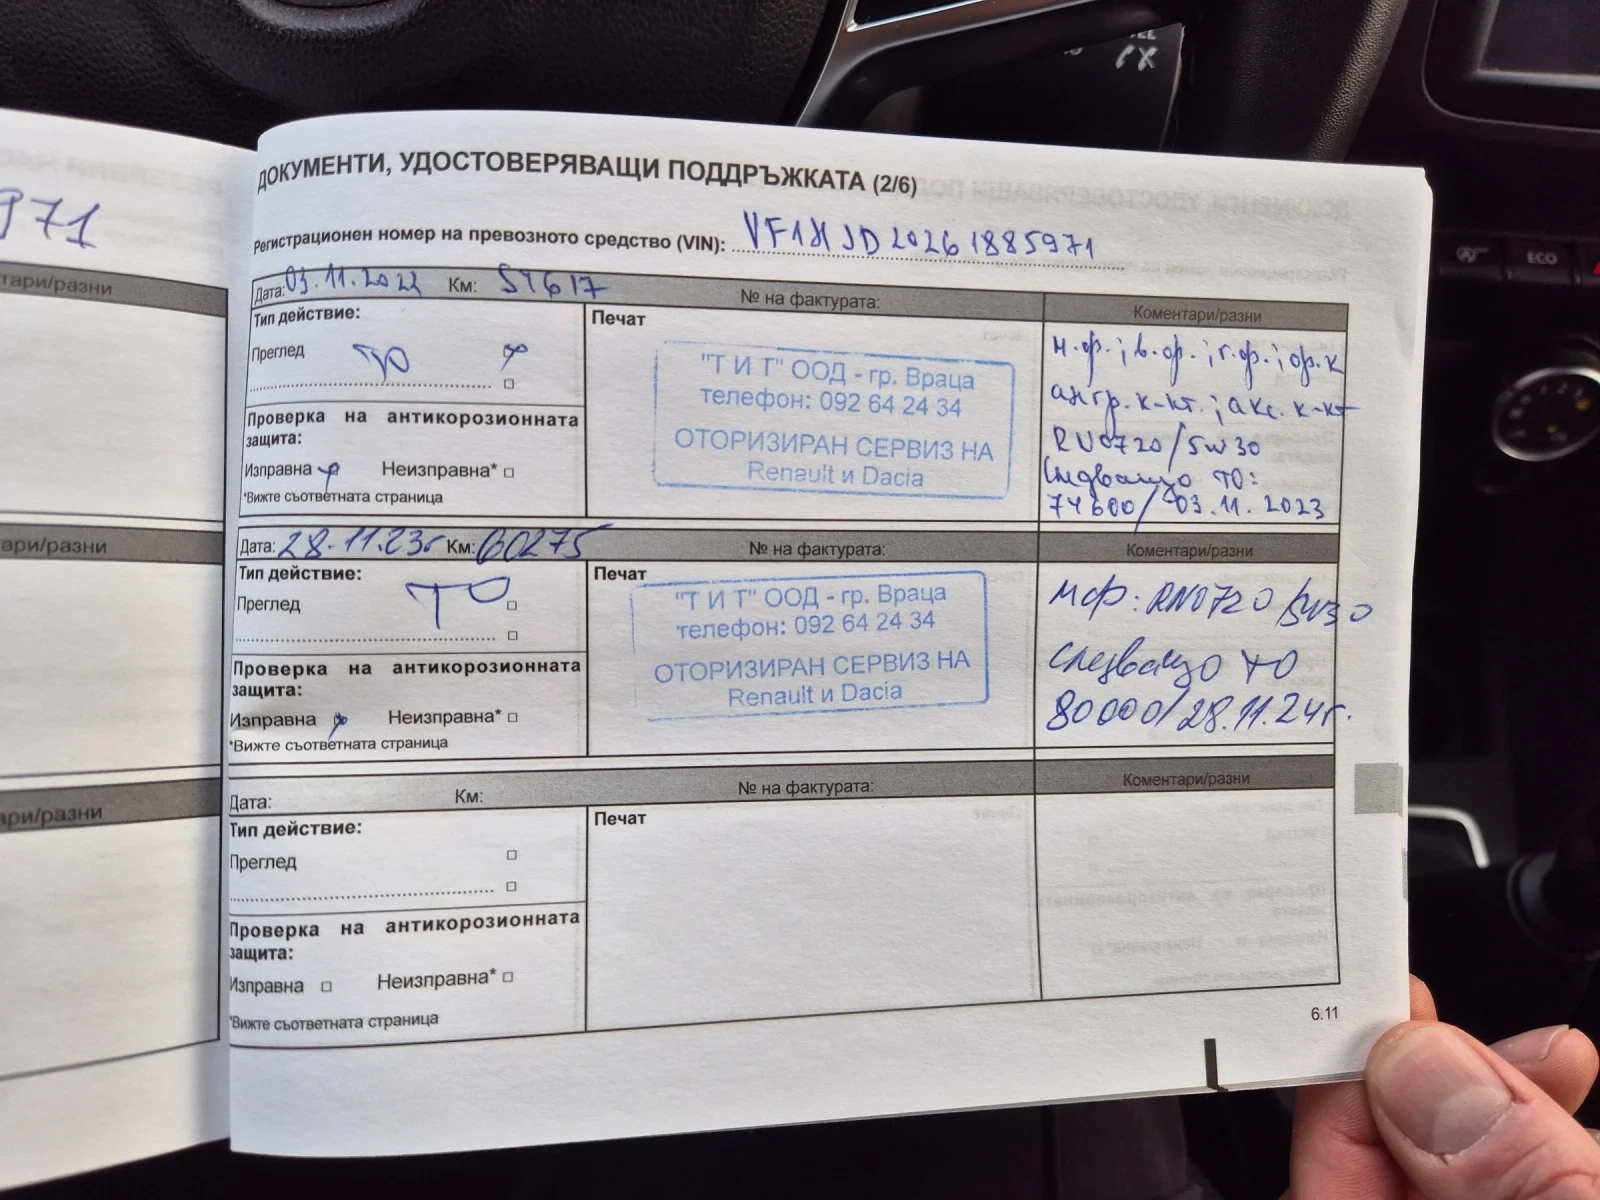 971
тари/разни
ари/разни
ари/разни
ECO
ДОКУМЕНТИ, УДОСТОВЕРЯВАЩИ ПОДДРЪЖКАТА (2/6)
Регистрационен номер на превозното средство (VIN): VF1HJD20261885971
Дата: 03.11.2022 Км: 54617 № на фактурата: Коментари/разни
Тип действие:
Преглед ТО
Проверка на антикорозионната
защита:
Изправна Неизправна*
*Вижте съответната страница
Печат
"Т И Т" ООД - гр. Враца
телефон: 092 64 24 34
ОТОРИЗИРАН СЕРВИЗ НА
Renault и Dacia
м.ф.; в.ф.; г.ф.; ф.к
ангр. к-кт.; акс. к-кт
RN0720/5W30
Следващо ТО:
74600/03.11.2023
Дата: 28.11.23г Км: 60275 № на фактурата: Коментари/разни
Тип действие:
Преглед ТО
Проверка на антикорозионната
защита:
Изправна Неизправна*
*Вижте съответната страница
Печат
"Т И Т" ООД - гр. Враца
телефон: 092 64 24 34
ОТОРИЗИРАН СЕРВИЗ НА
Renault и Dacia
мф: RN0720/5W30
следващо ТО
80000/28.11.24г.
Дата: Км: № на фактурата: Коментари/разни
Тип действие:
Преглед
Проверка на антикорозионната
защита:
Изправна Неизправна*
*Вижте съответната страница
Печат
6.11